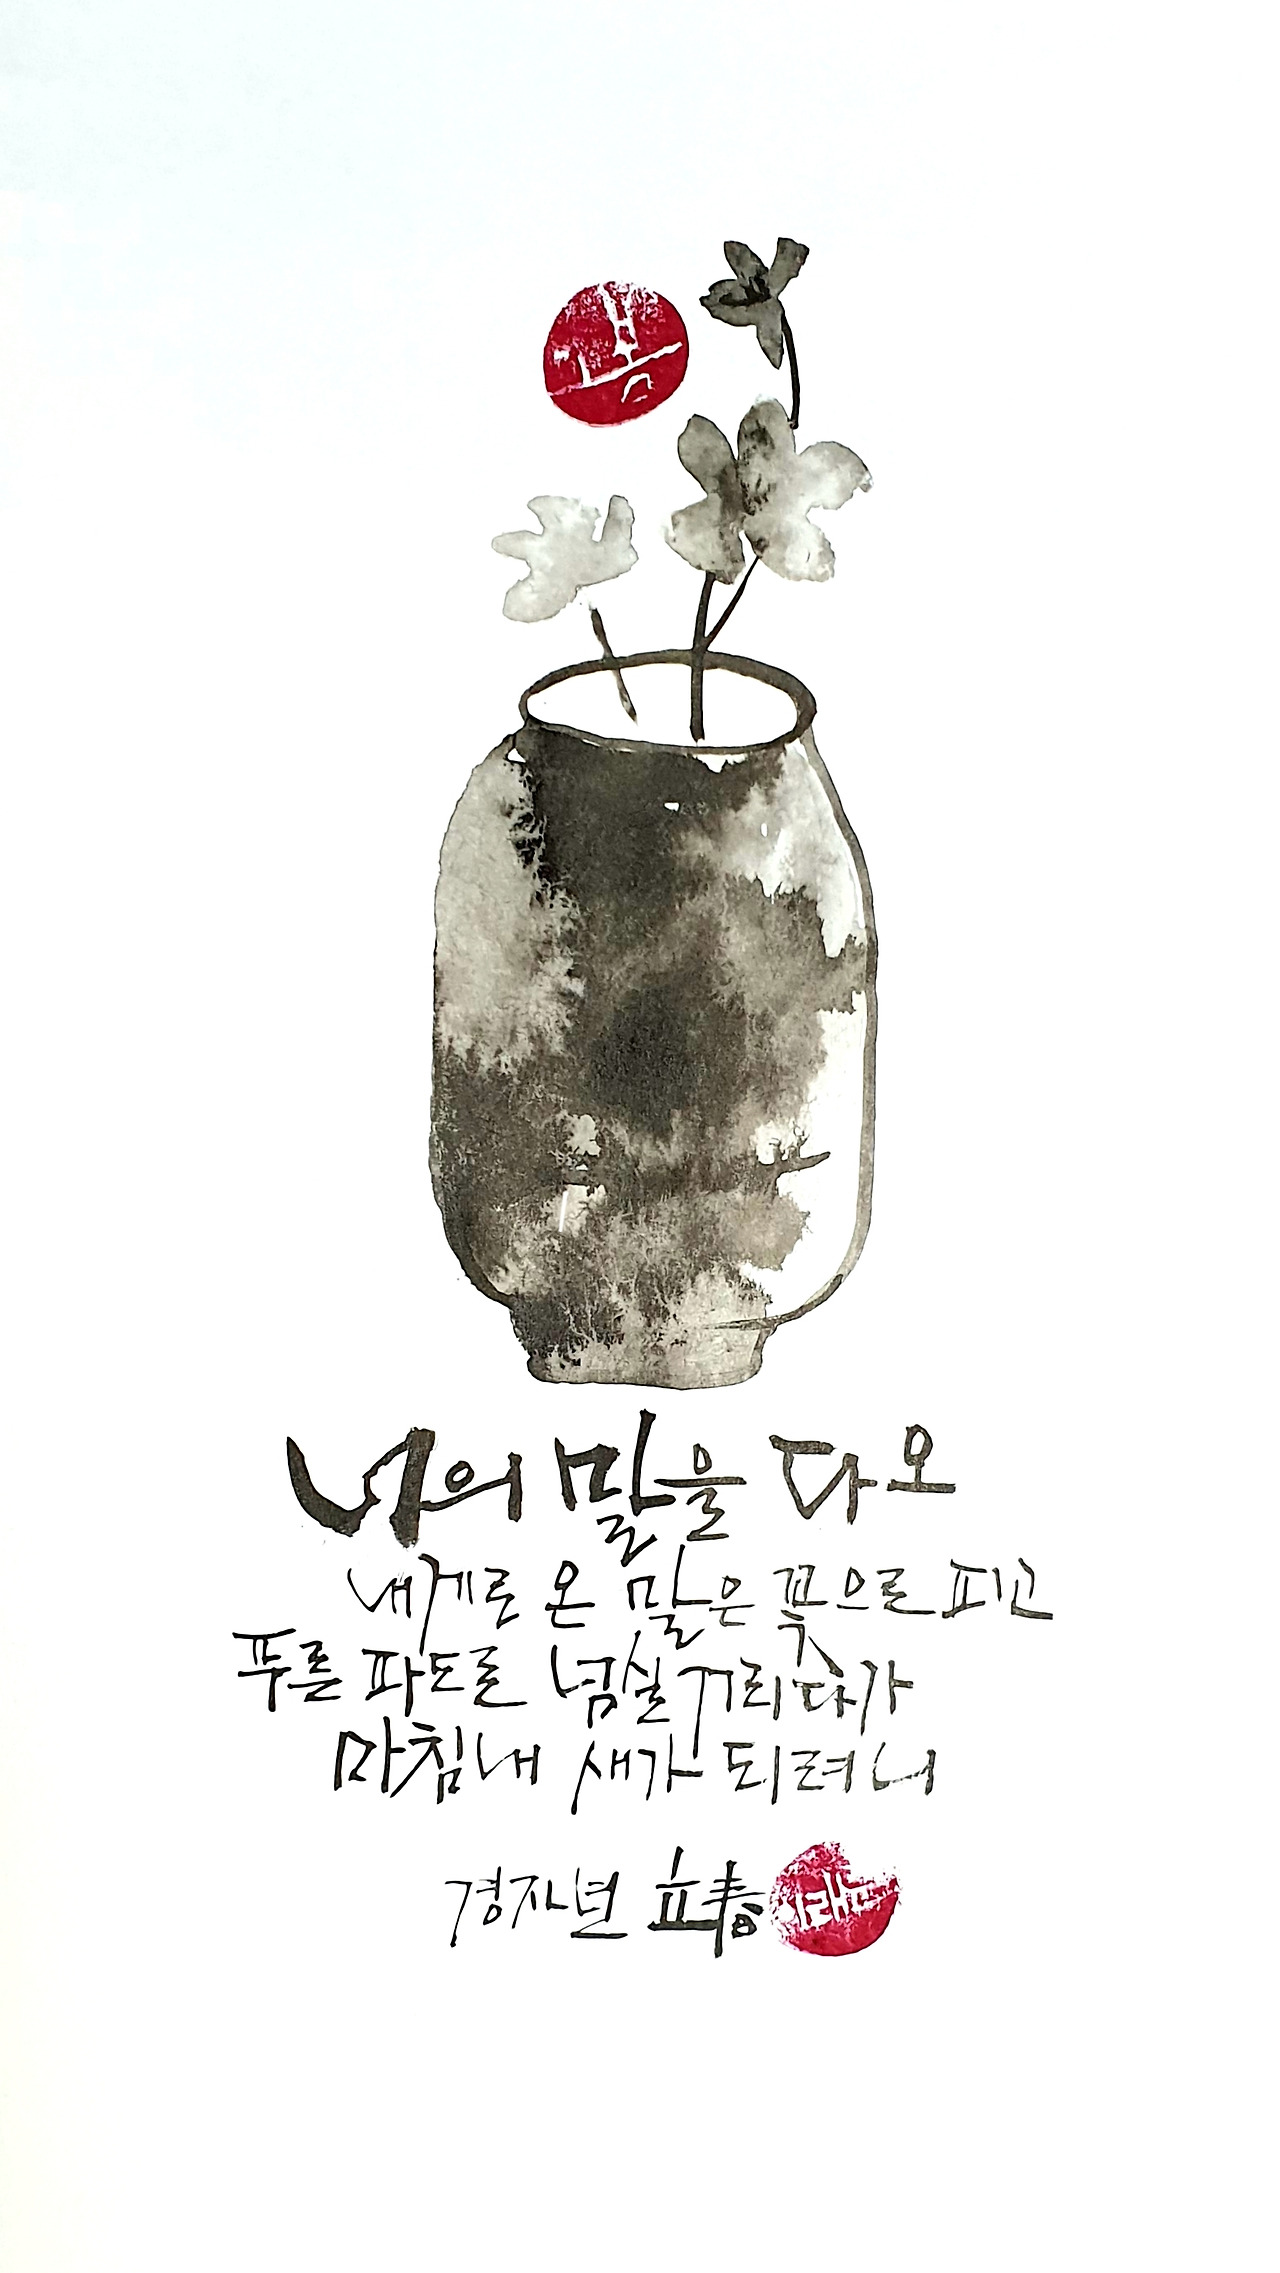 봄
너의 말을 다오
내게로 온 말은 꽃으로 피고
푸른 파도로 넘실거리다가
마침내 새가 되려니
경자년 立春